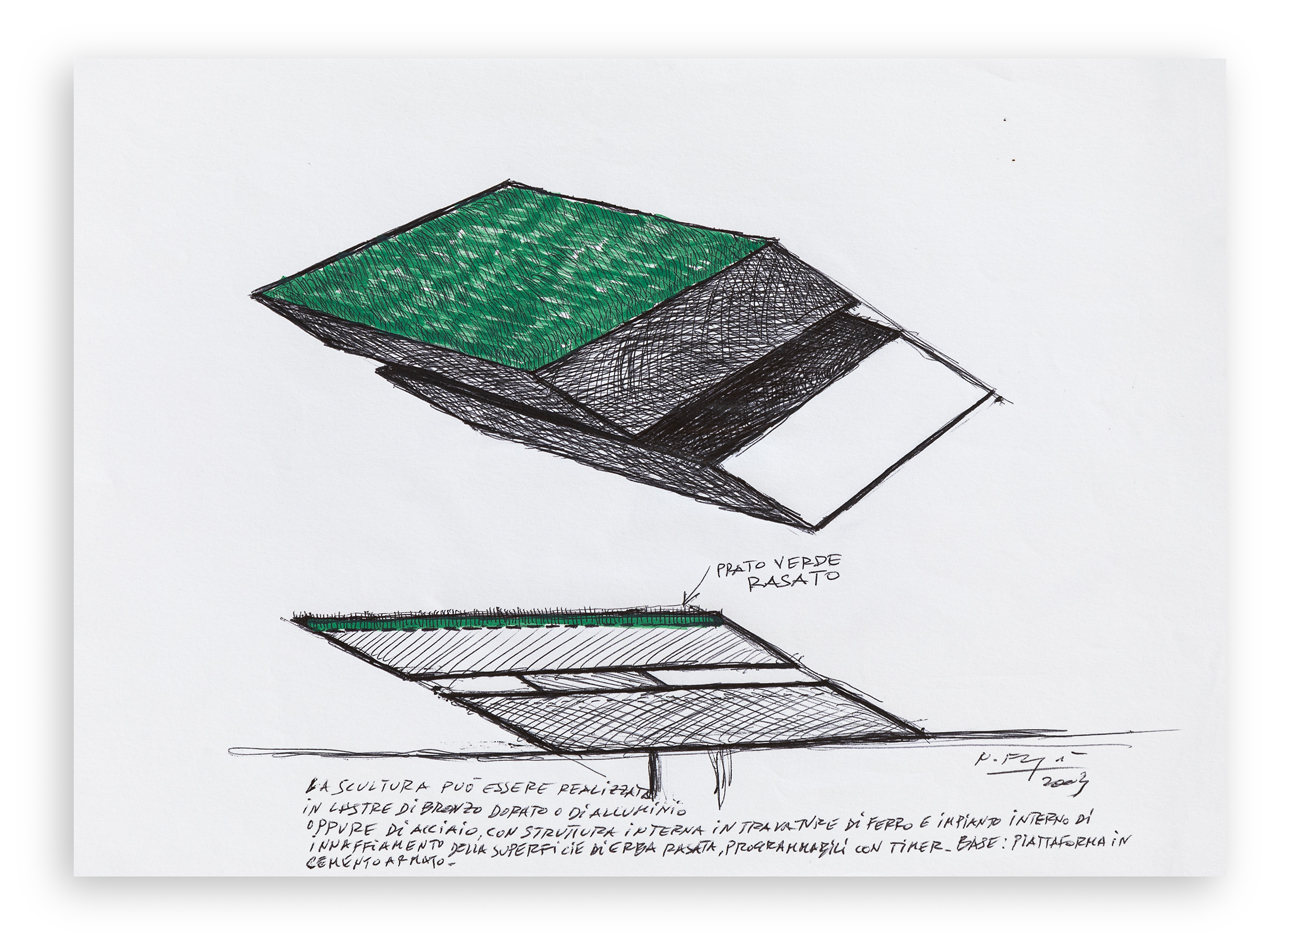 PRATO VERDE
RASATO
2003
LA SCULTURA PUÓ ESSERE REALIZZATA
IN LASTRE DI BRONZO DORATO O DI ALLUMINIO
OPPURE DI ACCIAIO, CON STRUTTURA INTERNA IN TRAVATURE DI FERRO E IMPIANTO INTERNO DI
INNAFFIAMENTO DELLA SUPERFICIE DI ERBA RASATA, PROGRAMMABILI CON TIMER - BASE: PIATTAFORMA IN
CEMENTO ARMATO -